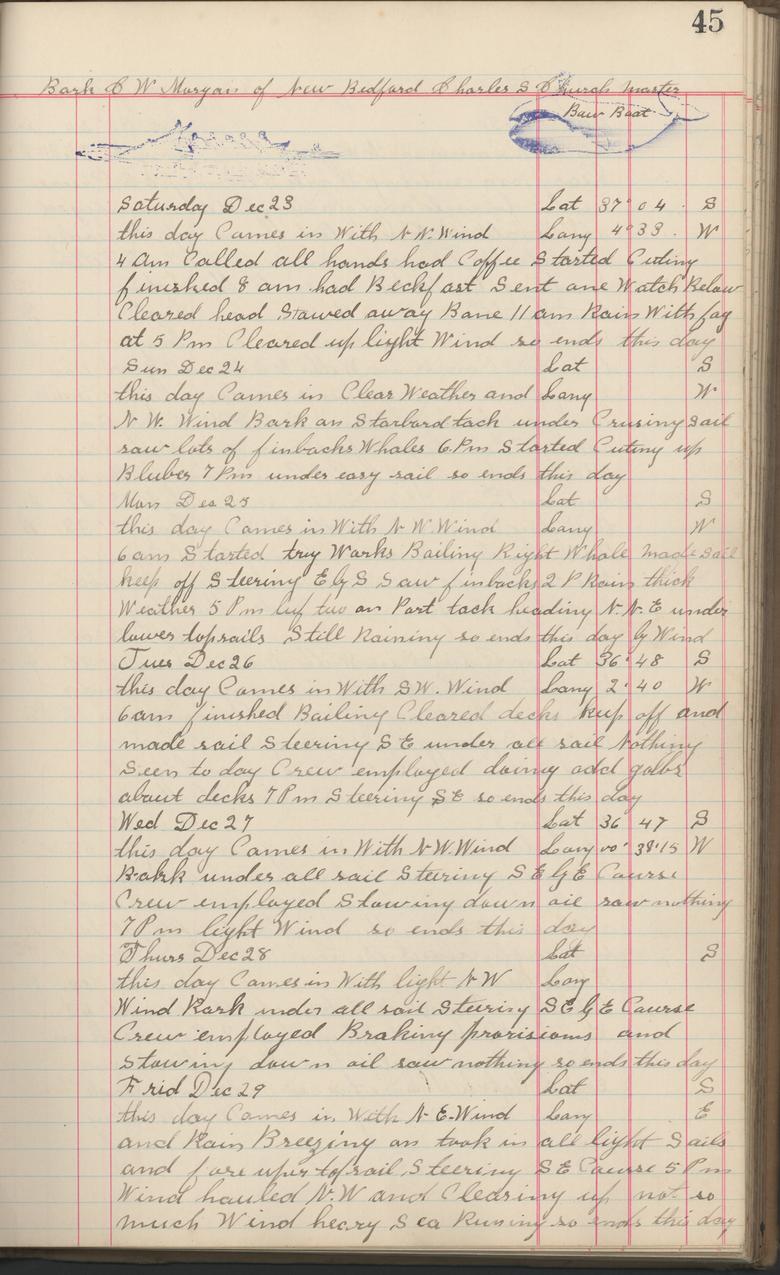 45
Bark C W Morgan of New Bedford Charles S Church master
Baw Boat
Saturday Dec 23 Lat 37° 04 S
this day Comes in With N N. Wind Long 4° 33 W
4 Am Called all hands had Coffee Started Cuting
finished 8 am had Beckfast Sent one Watch Below
Cleared head Stawed away Bone 11 am Rain With fog
at 5 Pm Cleared up light Wind so ends this day
Sun Dec 24 Lat S
this day Comes in Clear Weather and Long W
N W. Wind Bark on Starbord tack under Crusing sail
saw lots of finbacks Whales 6 Pm Started Cuting up
Bluber 7 Pm under easy sail so ends this day
Mon Dec 25 Lat S
this day Comes in With N W Wind Long W
6 am Started try Works Bailing Right Whale made sail
keep off Steering E by S Saw finbacks 2 P Rain thick
Weather 5 Pm luf two on Port tack heading N. N. E under
lower topsails Still Raining so ends this day by Wind
Tues Dec 26 Lat 36° 48 S
this day Comes in With SW. Wind Long 2° 40 W
6 am finished Bailing Cleared decks kup off and
made sail Steering SE under all sail Nothing
Seen to day Crew employed doing odd gobs
about decks 7 Pm Steering SE so ends this day
Wed Dec 27 Lat 36 47 S
this day Comes in With N.W. Wind Long 00° 38' 15 W
Bark under all sail Steering S E by E Course
Crew employed Stowing down oil saw nothing
7 Pm light Wind so ends this day
Thurs Dec 28 Lat S
this day Comes in With light N W Long
Wind Bark under all sail Steering SE by E Course
Crew employed Braking provisions and
Stowing down oil saw nothing so ends this day
Frid Dec 29 Lat S
this day Comes in With N. E. Wind Long E
and Rain Breezing on took in all light Sails
and fore uper topsail Steering SE Course 5 Pm
Wind hauled N. W and Clearing up not so
much Wind heavy Sea Runing so ends this day